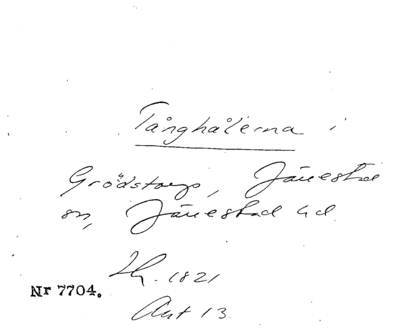 Tånghålerna i
Grödstorp, Järrestad
sn, Järrestad hd
Lk. 1821
Nr 7704.
Akt 13